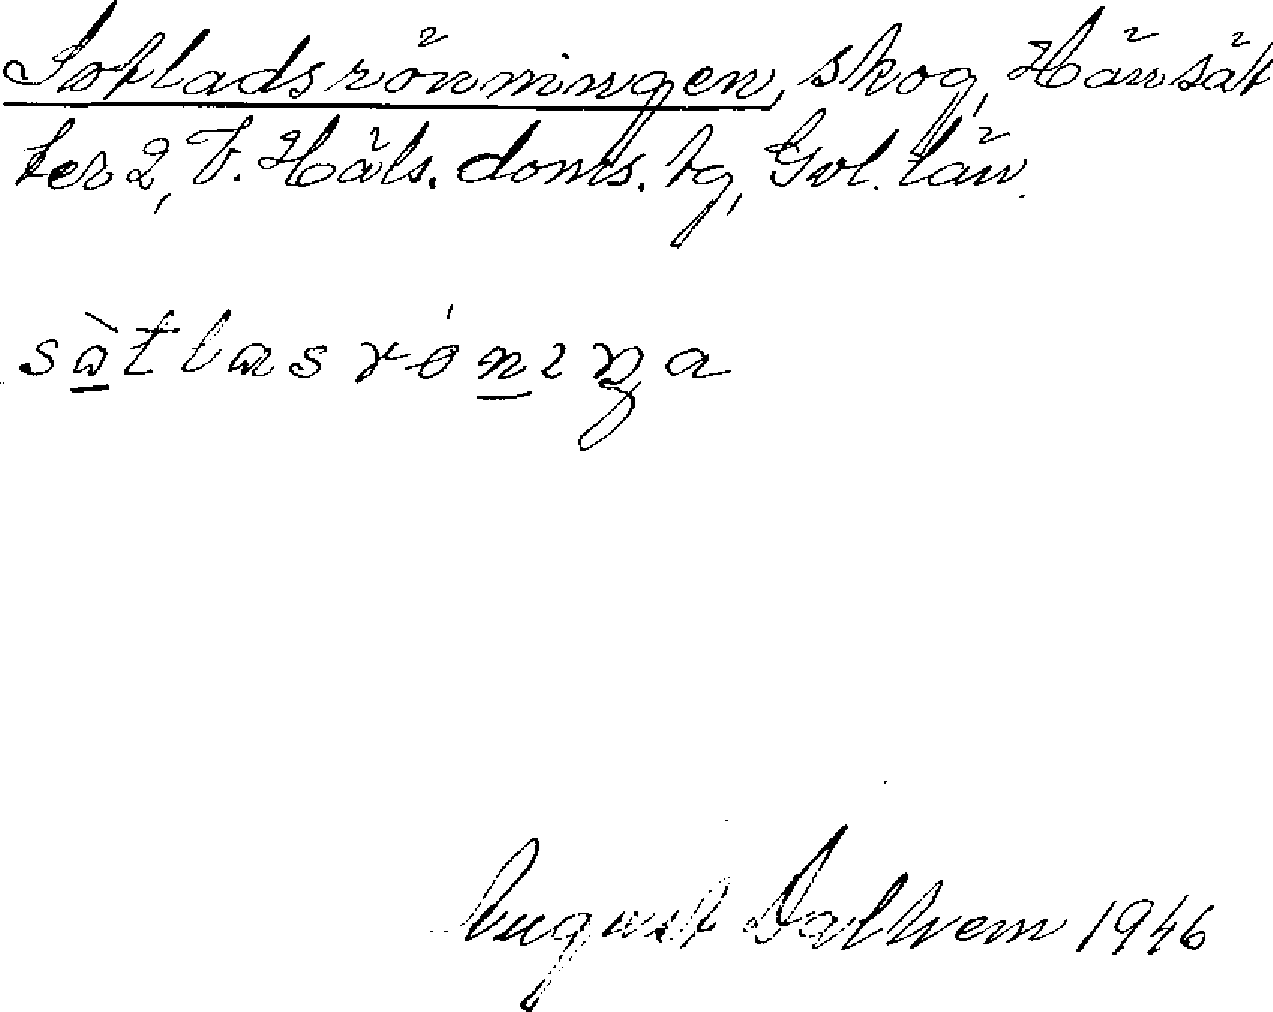 Sotladsrönningen, skog, Hänsät
ter 2, V. Häls. doms. tg, Gvl. län.
sàtlasrónıŋa
August Dalkvem 1946